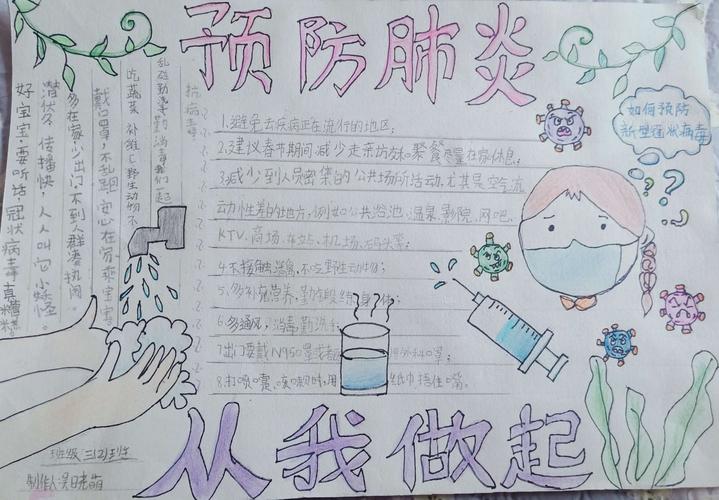 预防肺炎
如何预防
新型冠状病毒
抗病毒
乱砍勤洗手勤消毒我们一起
吃蔬菜 补维C野生动物不
戴口罩,不乱跑,安心在家乘宝宝
多在家少出门不到人群凑热闹。
潜伏久 传播快,人人叫它小矮怪。
好宝宝,要听话冠状病毒真糟糕。
1.避免去疾病正在流行的地区;
2.建议春节期间减少走亲访友和聚餐尽量在家休息;
3.减少到人员密集的公共场所活动,尤其是空气流
动性差的地方,例如公共浴池、温泉、影院、网吧、
KTV、商场、车站、机场、码头等;
4.不接触 不吃野生动物;
5.多补充营养,勤锻 身体;
6.多通风,消毒勤洗手
7.出门要戴N950罩或者
8.打喷嚏、咳嗽时,用 纸巾捂住口鼻。
从我做起
班级三(2)班
制作人